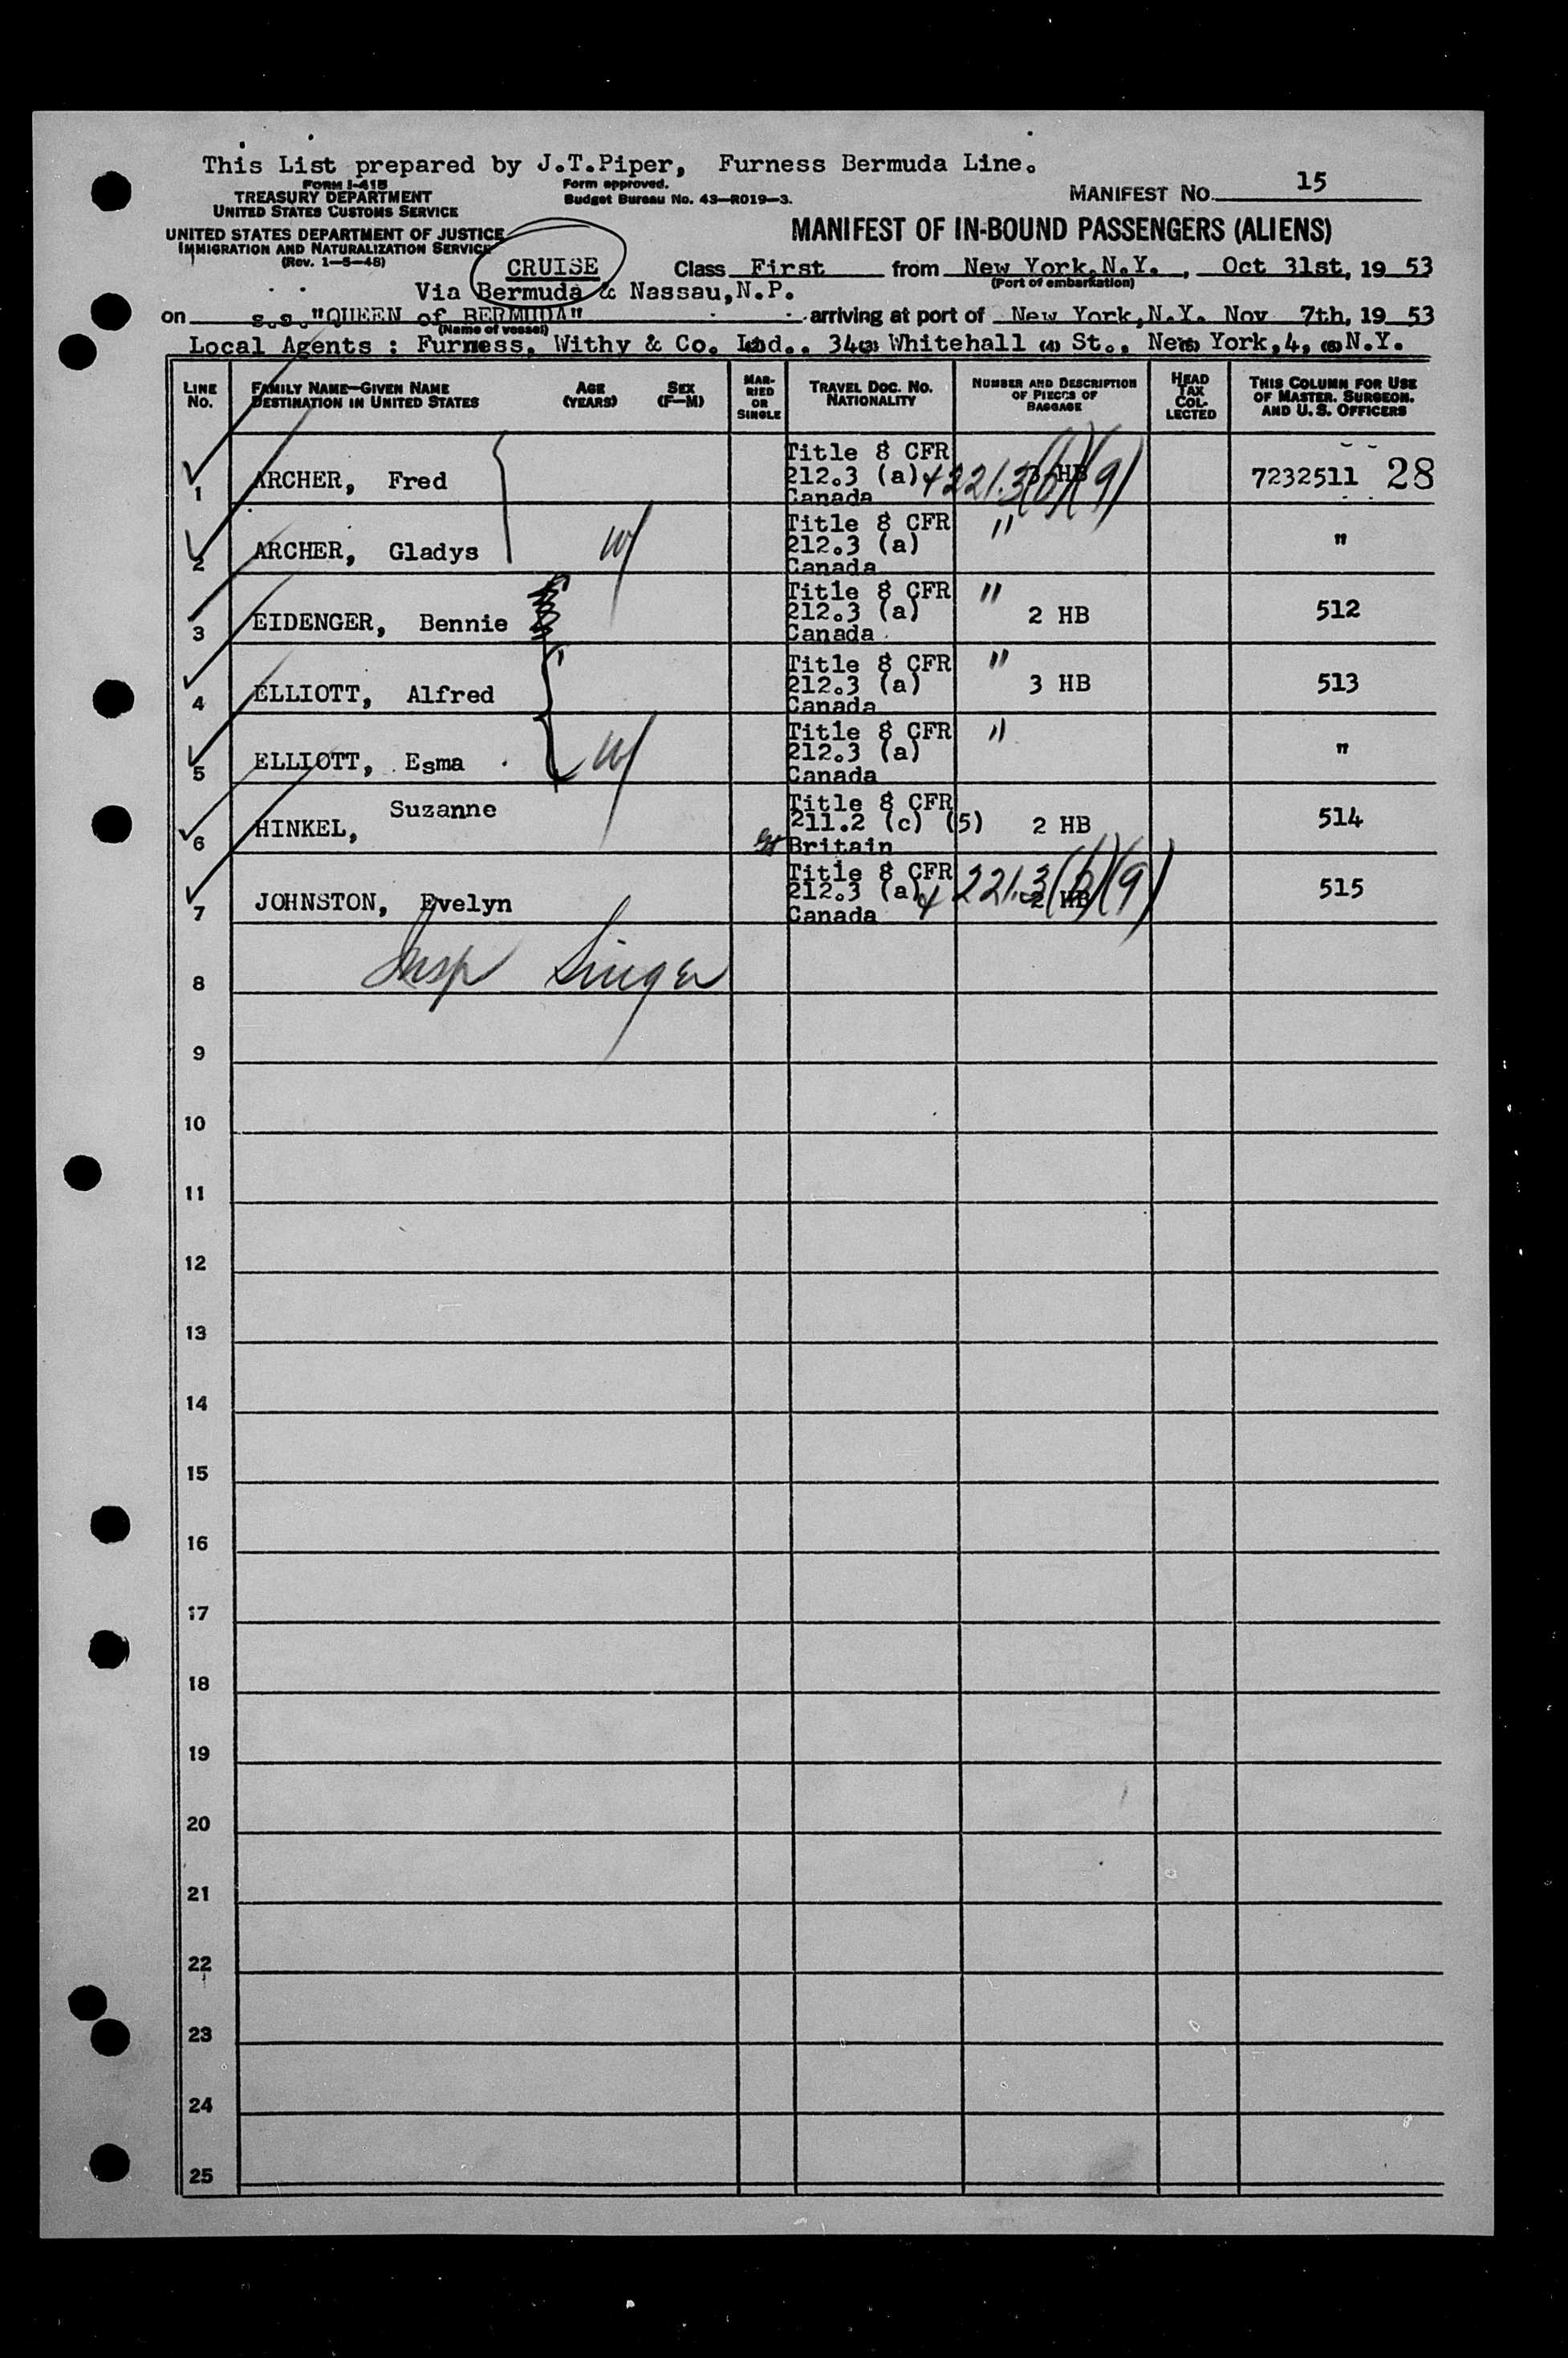 This List prepared by J.T.Piper, Furness Bermuda Line.
FORM I-415
TREASURY DEPARTMENT
UNITED STATES CUSTOMS SERVICE
Form approved.
Budget Bureau No. 43—R019—3.
MANIFEST NO. 15
UNITED STATES DEPARTMENT OF JUSTICE
IMMIGRATION AND NATURALIZATION SERVICE
(Rev. 1—5—48)
MANIFEST OF IN-BOUND PASSENGERS (ALIENS)
CRUISE Class First from New York,N.Y., Oct 31st, 19 53
(Port of embarkation)
Via Bermuda & Nassau,N.P.
on s.s."QUEEN of BERMUDA" arriving at port of New York,N.Y. Nov 7th, 19 53
(Name of vessel)
Local Agents : Furness, Withy & Co. Ltd., 34 (3) Whitehall (4) St., New York,4, (6) N.Y.
LINE No. FAMILY NAME—GIVEN NAME DESTINATION IN UNITED STATES AGE (YEARS) SEX (F—M) MARRIED OR SINGLE TRAVEL DOC. NO. NATIONALITY NUMBER AND DESCRIPTION OF PIECES OF BAGGAGE HEAD TAX COLLECTED THIS COLUMN FOR USE OF MASTER, SURGEON, AND U. S. OFFICERS
1 ARCHER, Fred Title 8 CFR 212.3 (a) + 221.3(b)(9) Canada 3 HB 7232511 28
2 ARCHER, Gladys W Title 8 CFR 212.3 (a) Canada " "
3 EIDENGER, Bennie Title 8 CFR 212.3 (a) Canada " 2 HB 512
4 ELLIOTT, Alfred Title 8 CFR 212.3 (a) Canada " 3 HB 513
5 ELLIOTT, Esma W Title 8 CFR 212.3 (a) Canada " "
6 HINKEL, Suzanne Title 8 CFR 211.2 (c) (5) Gt Britain 2 HB 514
7 JOHNSTON, Evelyn Title 8 CFR 212.3 (a) + 221.3(b)(9) Canada 2 HB 515
8 Insp Singer
9
10
11
12
13
14
15
16
17
18
19
20
21
22
23
24
25